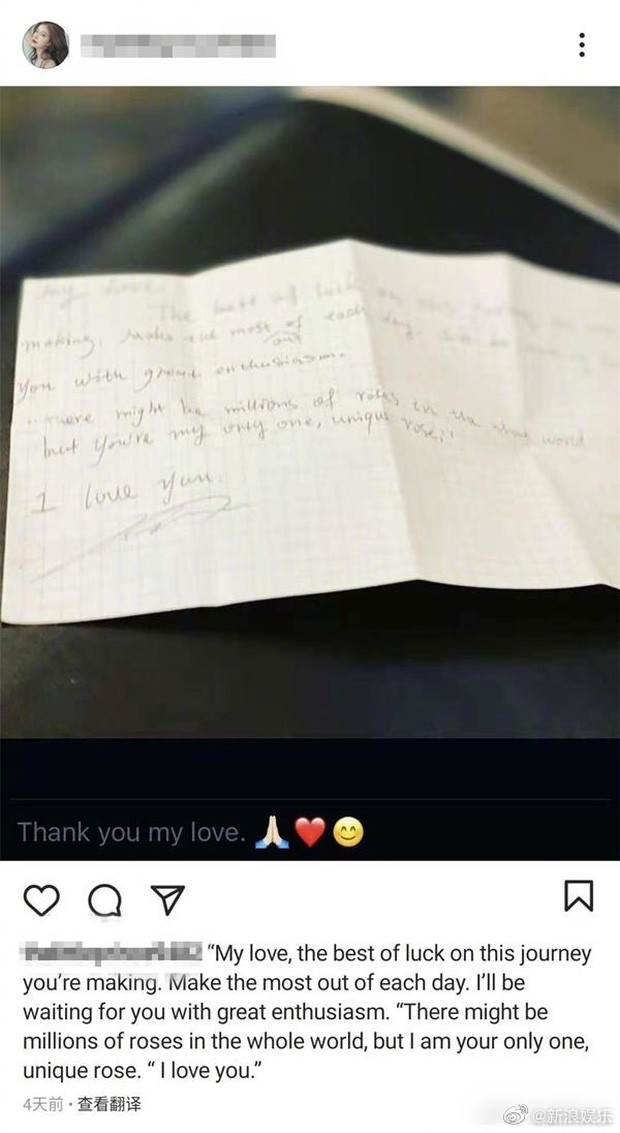 My love
The best of luck on this journey you're
making. Make the most of each day. I'll be waiting for
out
you with great enthusiasm.
"There might be millions of roses in the whole world
but you're my only one, unique rose;"
I love you.
Thank you my love. 🙏🏻❤️😊
"My love, the best of luck on this journey
you're making. Make the most out of each day. I'll be
waiting for you with great enthusiasm. "There might be
millions of roses in the whole world, but I am your only one,
unique rose. " I love you."
4天前 · 查看翻译
@新浪娱乐